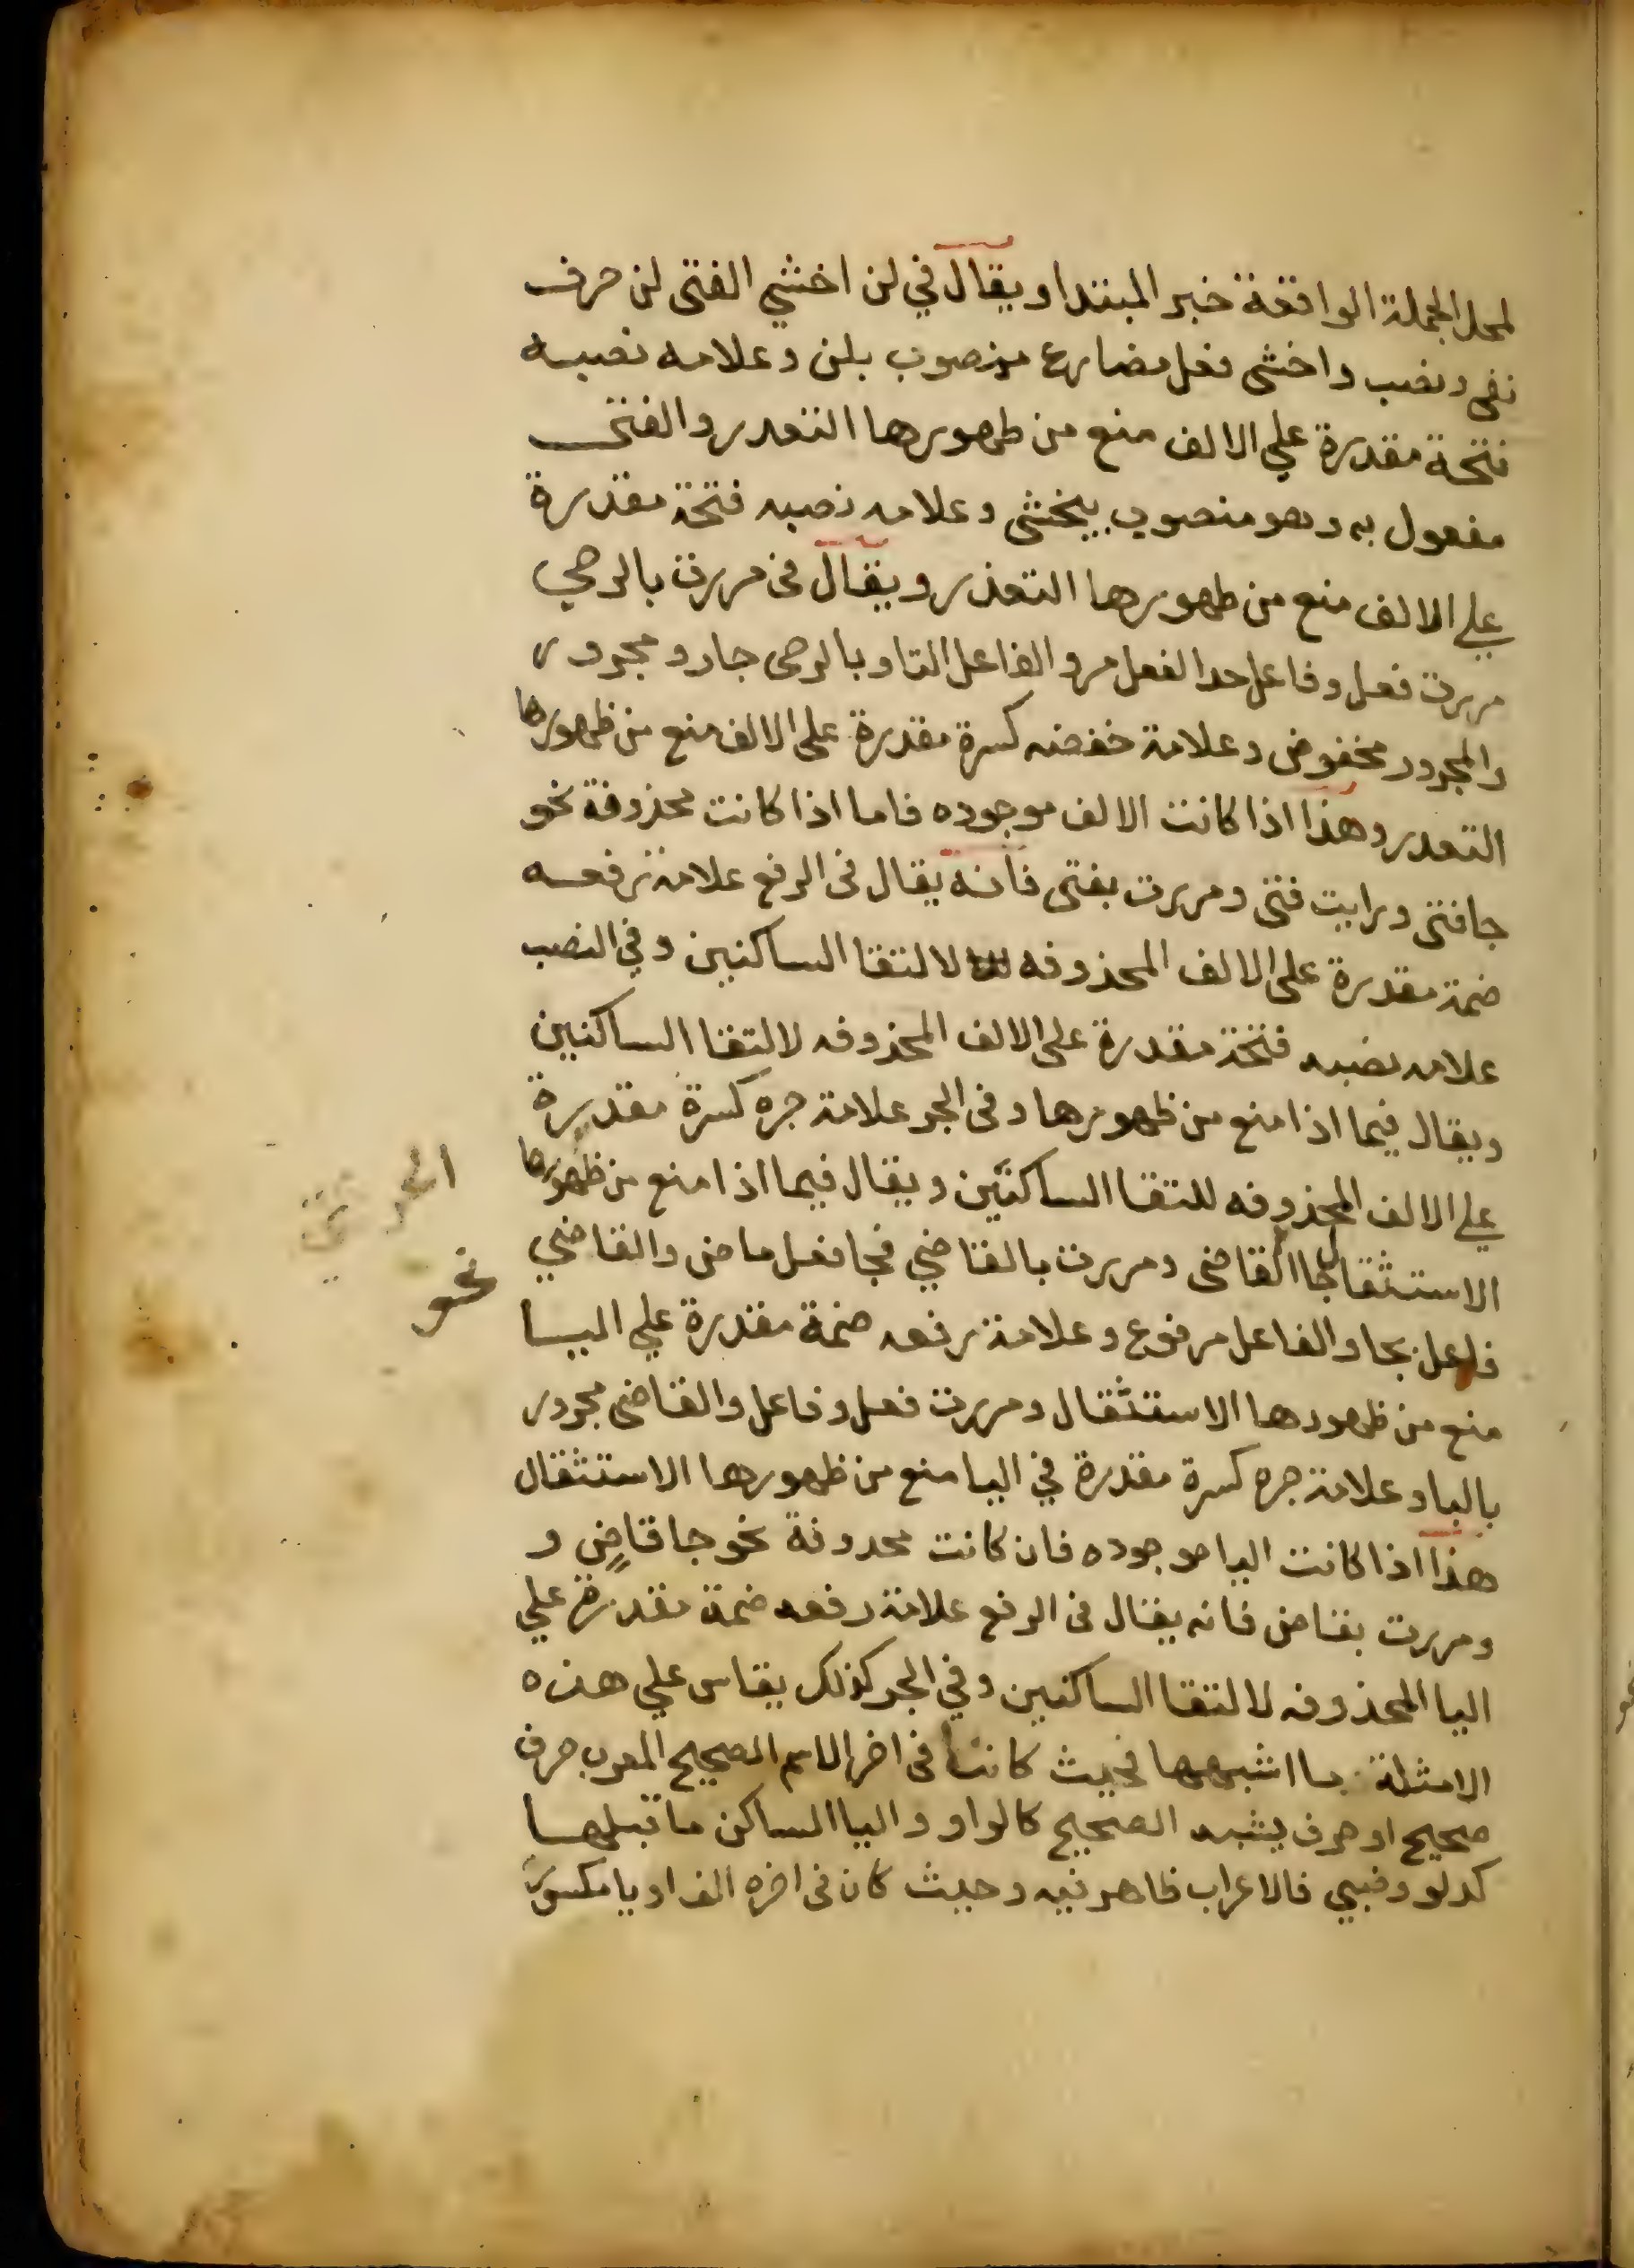 لمحل الجملة الواقعة خبر المبتدا ويقال في لن اخشي الفتى لن حرف
نفى ونصب واخشى فعل مضارع منصوب بلن وعلامه نصبه
فتحة مقدرة علي الالف منع من ظهورها التعدر والفتى
مفعول به وهو منصوب بيخشى وعلامه نصبه فتحة مقدرة
علي الالف منع من ظهورها التعذر ويقال فى مررت بالرحي
مررت فعل وفاعل حد الفعل مر والفاعل التا وبالرحى جار ومجرور
والمجرور مخفوض وعلامة خفضه كسرة مقدرة على الالف منع من ظهورها
التعدر وهذا اذا كانت الالف موجوده فاما اذا كانت محذوفة نحو
جا فتى ورايت فتى ومررت بفتى فانه يقال فى الرفع علامة رفعه
ضمة مقدرة على الالف المحذوفه لالتقا الساكنين وفي النصب
علامه نصبه فتحة مقدرة على الالف المحذوفه لالتقا الساكنين
ويقال فيما اذا منع من ظهورها وفى الجر علامة جره كسرة مقدرة
علي الالف المحذوفه للتقا الساكنين ويقال فيما اذا منع من ظهورها
الاستثقال جا القاضى ومررت بالقاضي فجا فعل ماض والقاضي
فاعل بجا والفاعل مرفوع وعلامة رفعه ضمة مقدرة علي اليا
نحو
منع من ظهورها الاستثقال ومررت فعل وفاعل والقاضى مجرور
بالبا وعلامة جره كسرة مقدرة في اليا منع من ظهورها الاستثقال
هذا اذا كانت اليا موجوده فان كانت محدوفة نحو جا قاضٍ و
ومررت بقاض فانه يقال فى الرفع علامة رفعه ضمة مقدرة علي
اليا المحذوفه لالتقا الساكنين وفي الجر كذلك يقاس علي هذه
الامثلة ما اشبهها فحيث كانت فى اخر الاسم الصحيح المعرب حرف
صحيح او حرف يشبه الصحيح كالواو واليا الساكن ما قبلها
كدلو وظبي فالاعراب ظاهر فيه وحيث كان فى اخره الف او يا مكسور